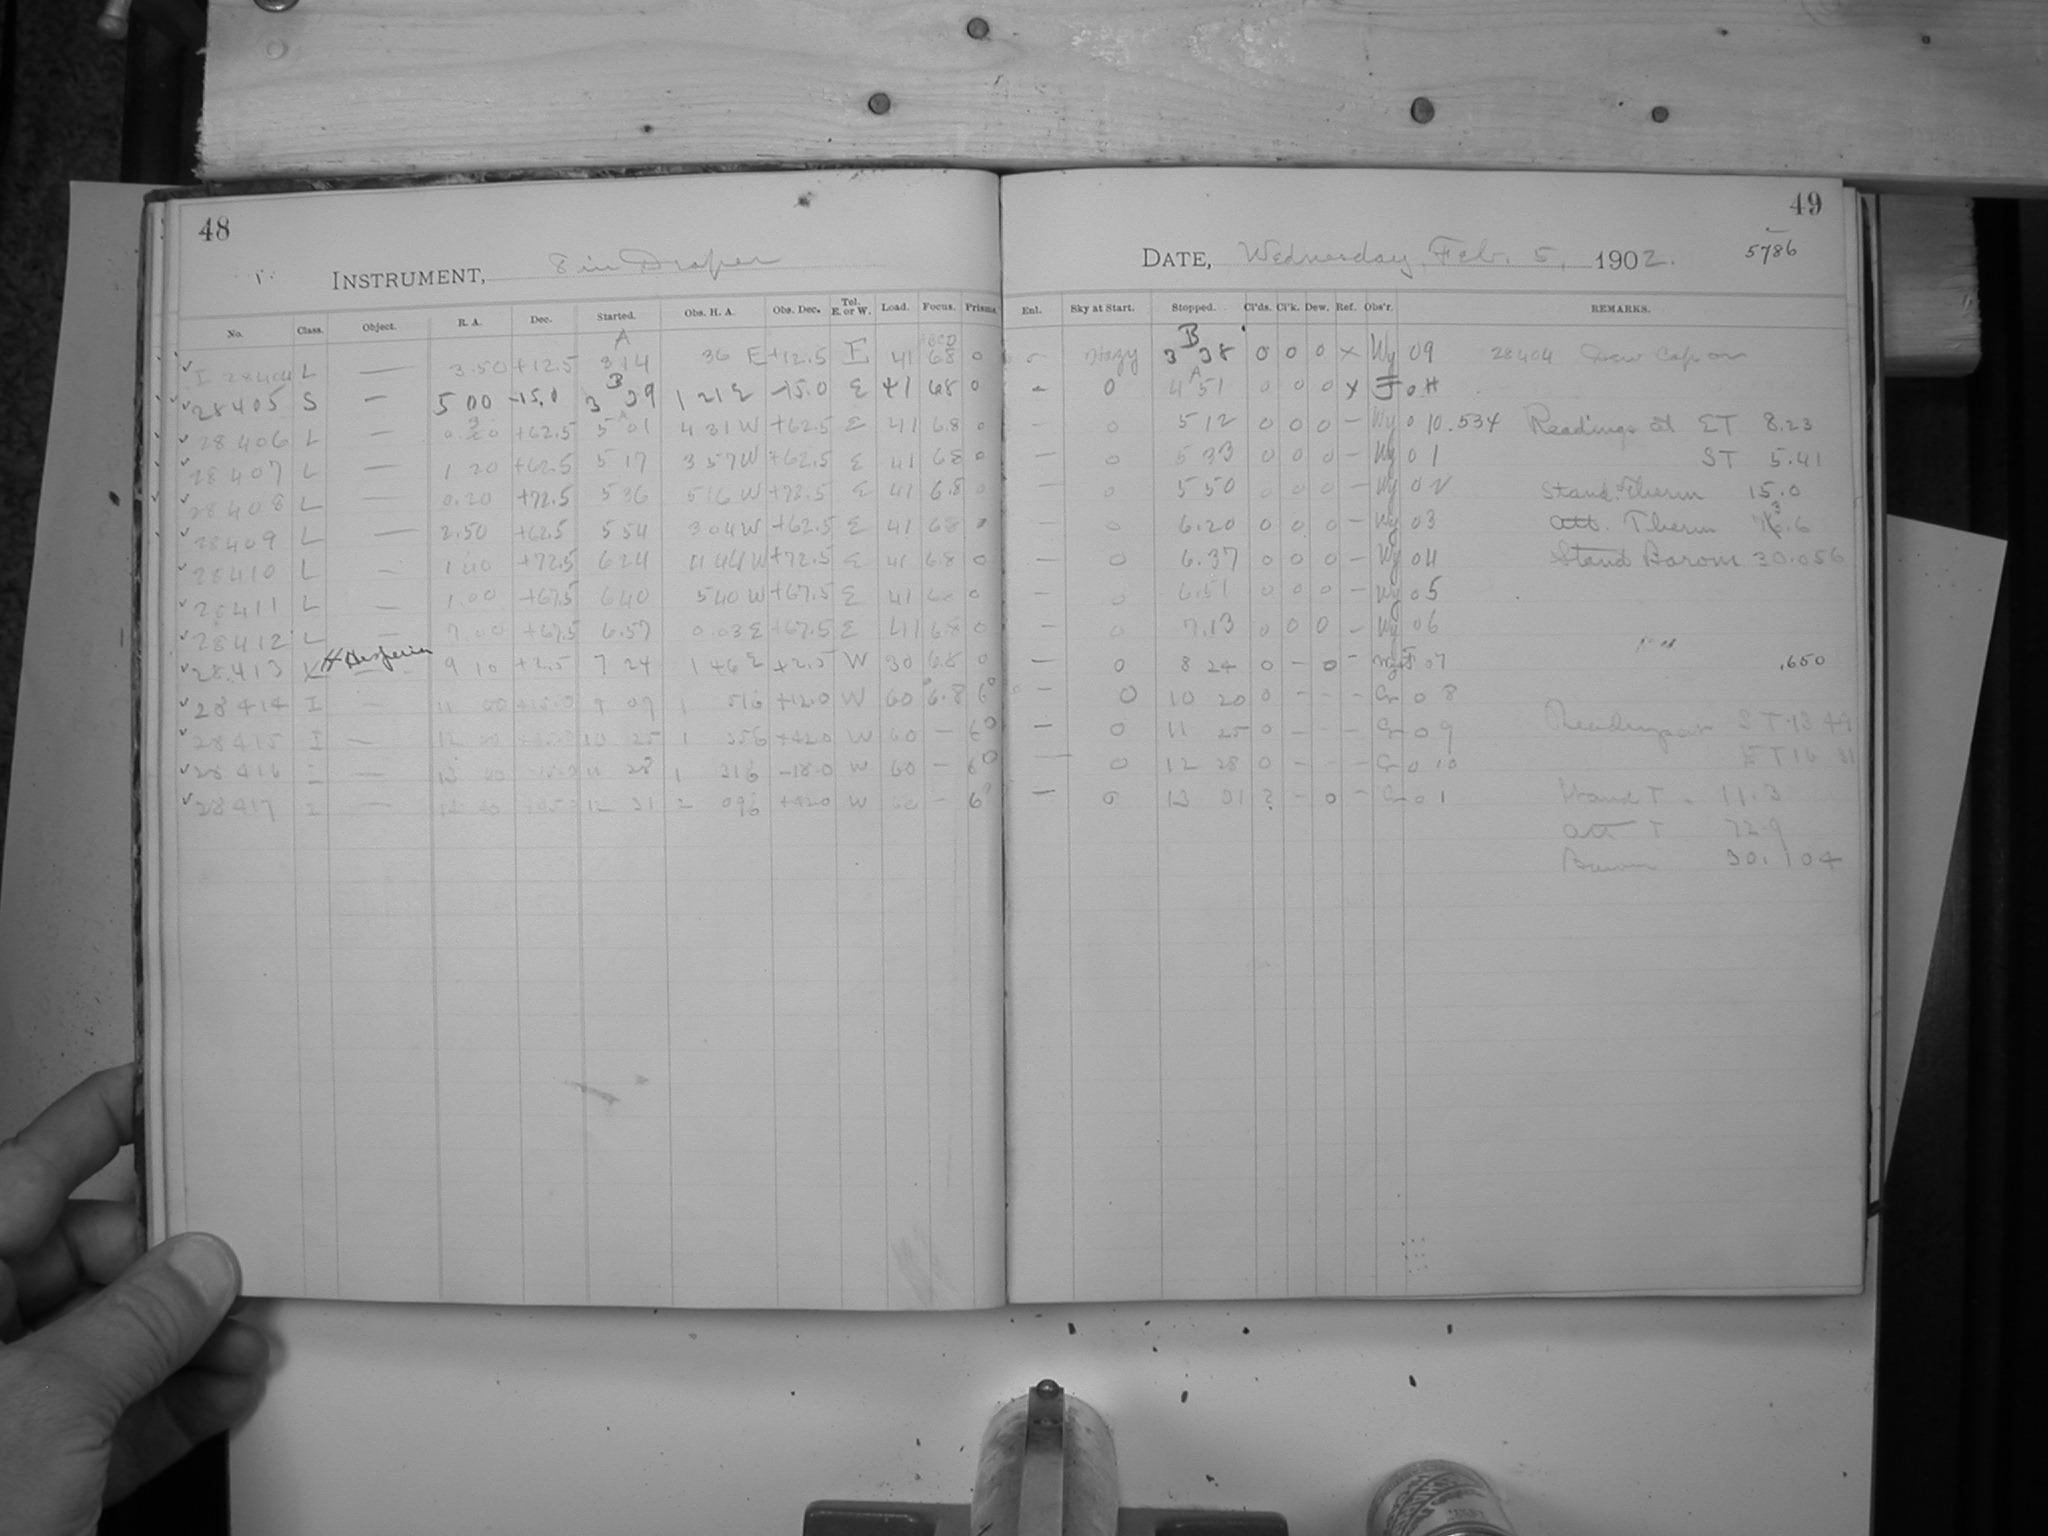 48
INSTRUMENT, 8 in Draper
No. Class. Object. R. A. Dec. Started. Obs. H. A. Obs. Dec. Tel. E. or W. Load. Focus. Prisms.
A
I 28404 L — 3.50 +12.5 3 14 36 E +12.5 E 41 68 0
B
28405 S — 5 00 -15.0 3 39 1 21 E -15.0 E 41 68 0
28406 L — +62.5 5 01 4 31 W +62.5 E 41 6.8 0
28407 L — 1 20 +62.5 5 17 3 57 W +62.5 E 41 68 0
28408 L — 0.20 +72.5 5 36 5 16 W +72.5 E 41 6.8 0
28409 L — 2.50 +62.5 5 54 3 04 W +62.5 E 41 68
28410 L — 1 40 +72.5 6 24 4 44 W +72.5 E 41 6.8 0
28411 L — 1.00 +67.5 6 40 5 40 W +67.5 E 41 0
28412 L — 7.00 +67.5 6.57 0.03 E +67.5 E 41 6.8 0
28.413 9 10 +2.5 7 24 1 46 E +2.5 W 30 6.8 0
28414 I — 11 00 9 09 1 51 6 +12.0 W 60 6.8 6°
28415 I — 10 25 1 35 6 +42.0 W 60 — 6°
28416 I — 11 28 1 31 6 -18.0 W 60 — 6°
28417 I — 12 31 2 09 6 +42.0 W 60 — 6°
49
DATE, Wednesday, Feb. 5, 1902. 5786
Enl. Sky at Start. Stopped. Cl'ds. Cl'k. Dew. Ref. Obs'r. REMARKS.
B
Hazy 3 38 0 0 0 x Wy 09 28404 Dew Cap on
A
— 0 4 51 0 0 0 x
— 0 5 12 0 0 0 — Wy 0 10.534 Readings at ET 8.23
— 0 5 33 0 0 0 — Wy 01 ST 5.41
— 0 5 50 0 0 0 — Wy 02 Stand. Therm 15.0
— 0 6.20 0 0 0 — Wy 03 Att. Therm
— 0 6.37 0 0 0 — Wy 04 Stand Barom 30.056
— 0 6.51 0 0 0 — Wy 05
— 0 7.13 0 0 0 — Wy 06
— 0 8 24 0 — 0 — 07 .650
— 0 10 20 0 — — — 0 8
— 0 11 25 0 — — — 0 9 Readings at ST 13 49
— 0 12 28 0 — — — 0 10 ET 16 31
— 0 13 31 ? — 0 — 0 1 Stand T. 11.3
Att T 72.9
Barom 30.104